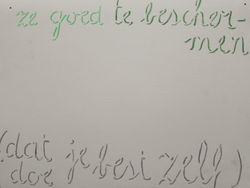 ze goed te bescher-
men
(dat je best zelf)
doe